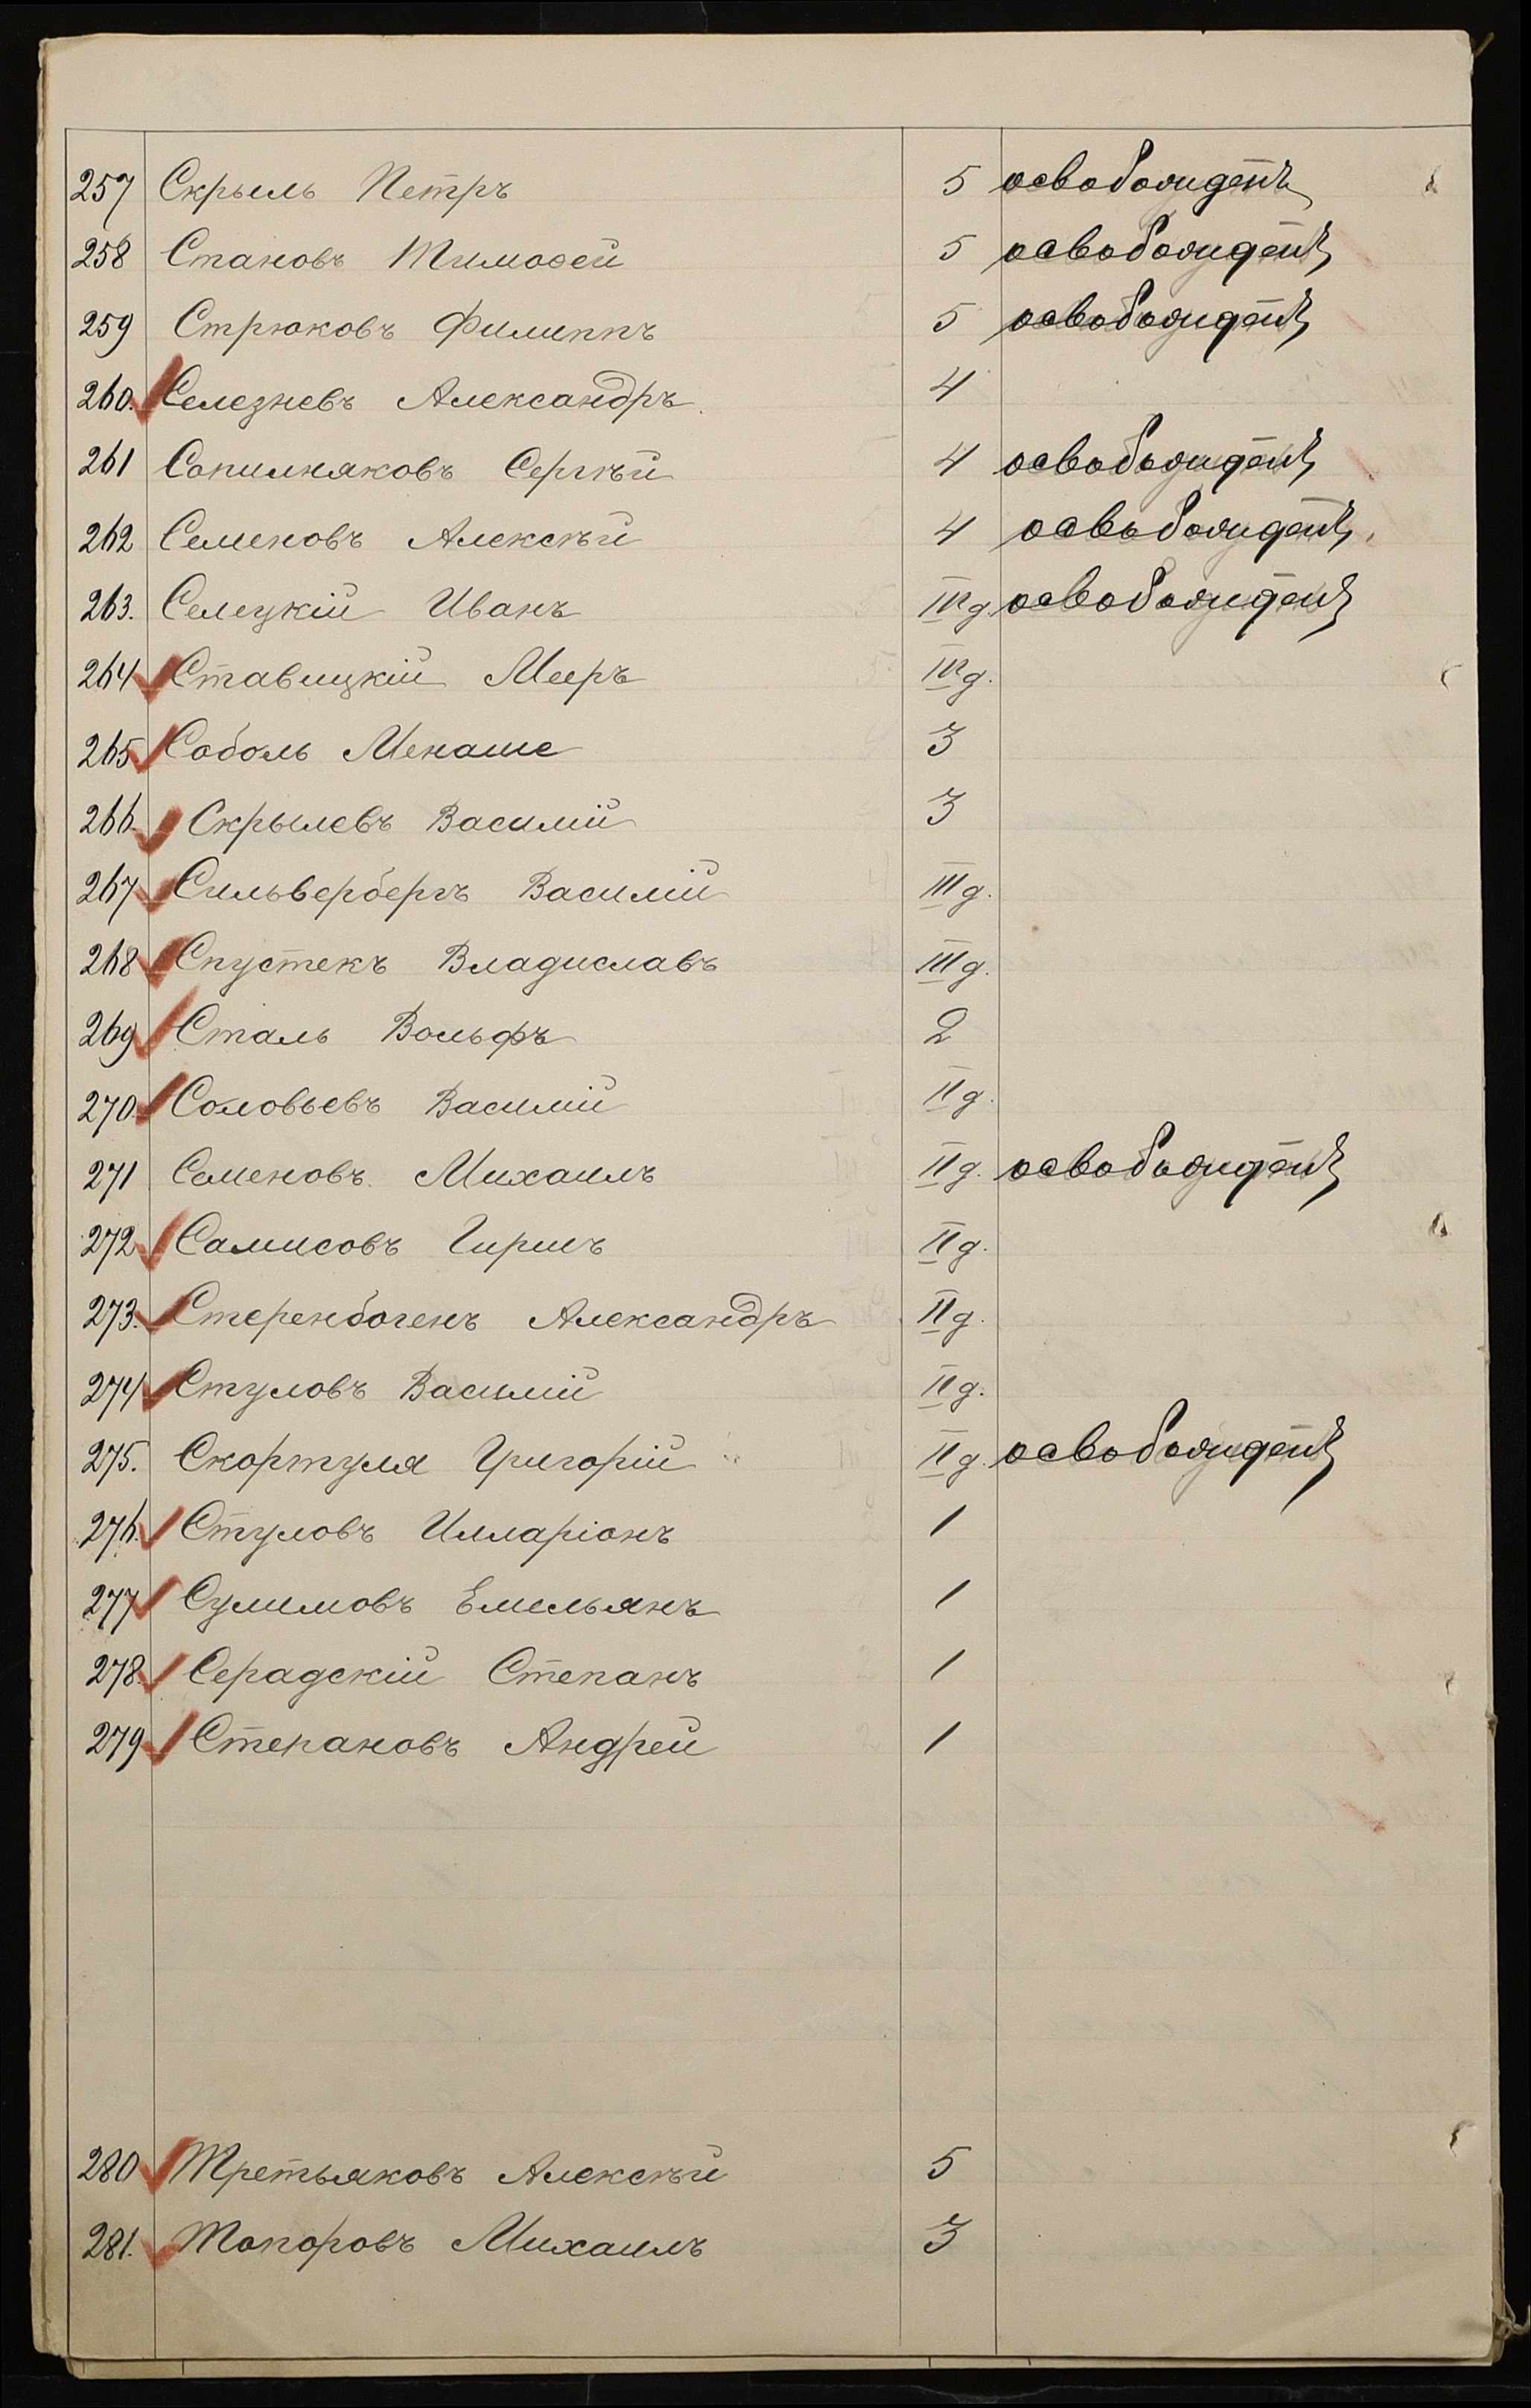 257 Скрыль Петръ 5 освобожденъ
258 Становъ Тимофей 5 освобожденъ
259 Стрюковъ Филиппъ 5 освобожденъ
260. Селезневъ Александръ 4
261 Сопилняковъ Сергѣй 4 освобожденъ
262 Семеновъ Алексѣй 4 освобожденъ
263. Селецкій Иванъ IIIд. освобожденъ
264 Ставицкій Мееръ IIIд.
265 Соболь Менаше 3
266. Скрылевъ Василій 3
267 Сильвербергъ Василій IIIд.
268 Спустекъ Владиславъ IIIд.
269 Сталь Вольфъ 2
270. Соловьевъ Василій IIд.
271 Семеновъ Михаилъ IIд. освобожденъ
272 Самисовъ Гиршъ IIд.
273. Стеренбогенъ Александръ IIд.
274 Стуловъ Василій IIд.
275. Скортуля Григорій IIд. освобожденъ
276. Стуловъ Илларіонъ 1
277 Сулимовъ Емельянъ 1
278. Серадскій Степанъ 1
279 Степановъ Андрей 1
280 Третьяковъ Алексѣй 5
281. Топоровъ Михаилъ 3